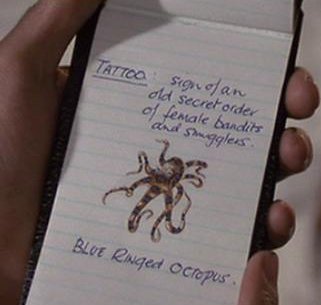 TATTOO: sign of an
old secret order
of female bandits
and smugglers.
BLUE RINGED OCTOPUS.